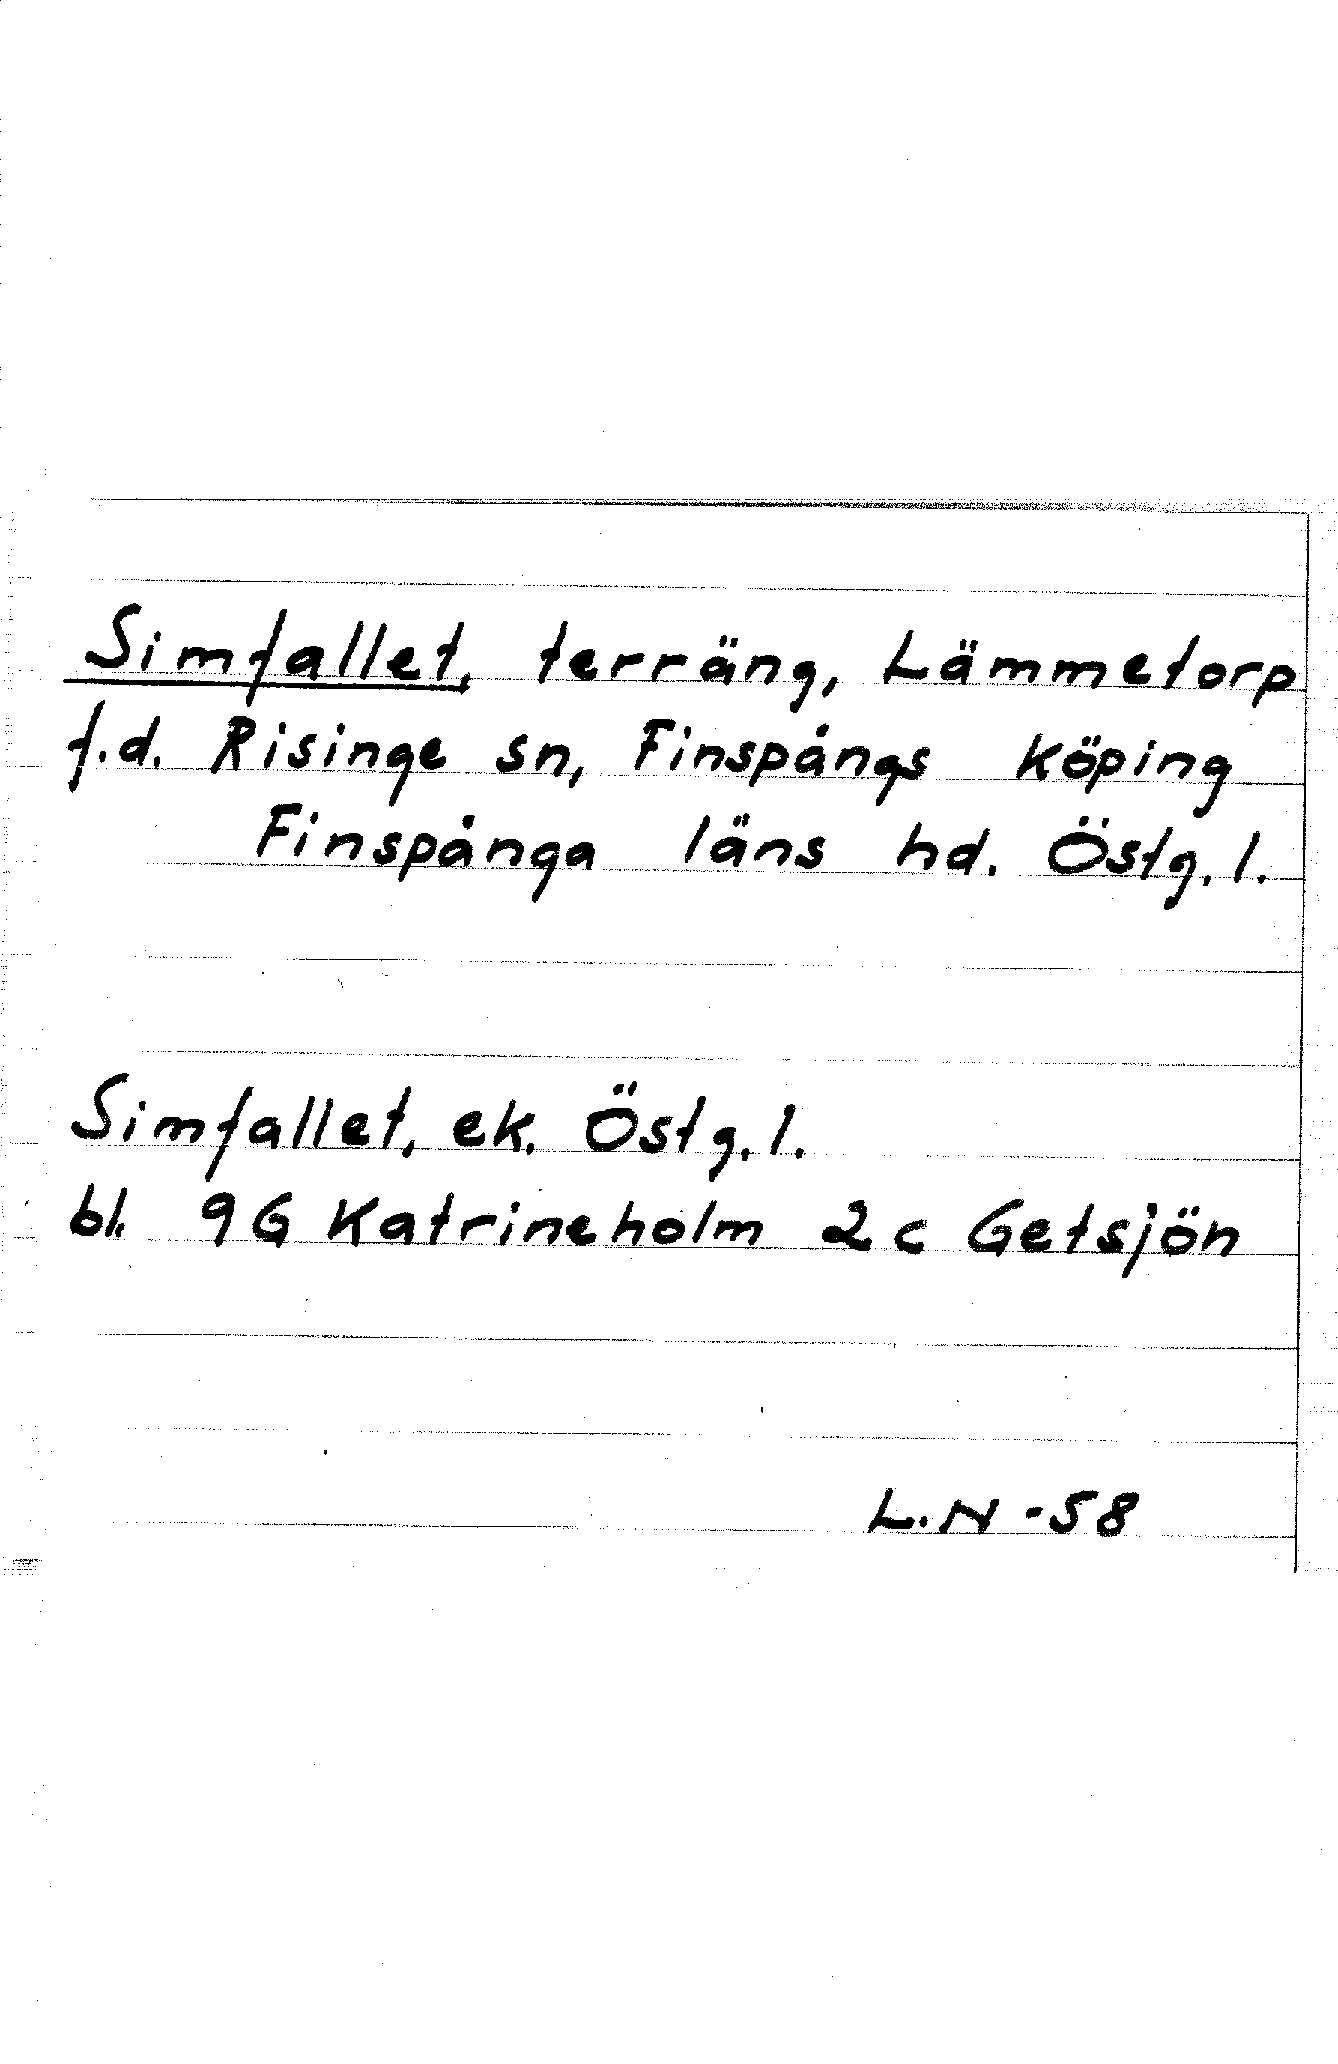 Simfallet, terräng, Lämmetorp
f.d. Risinge sn, Finspångs köping
Finspånga läns hd. Östg. l.
Simfallet, ek. Östg. l.
bl. 9G Katrineholm 2c Getsjön
L.N -58